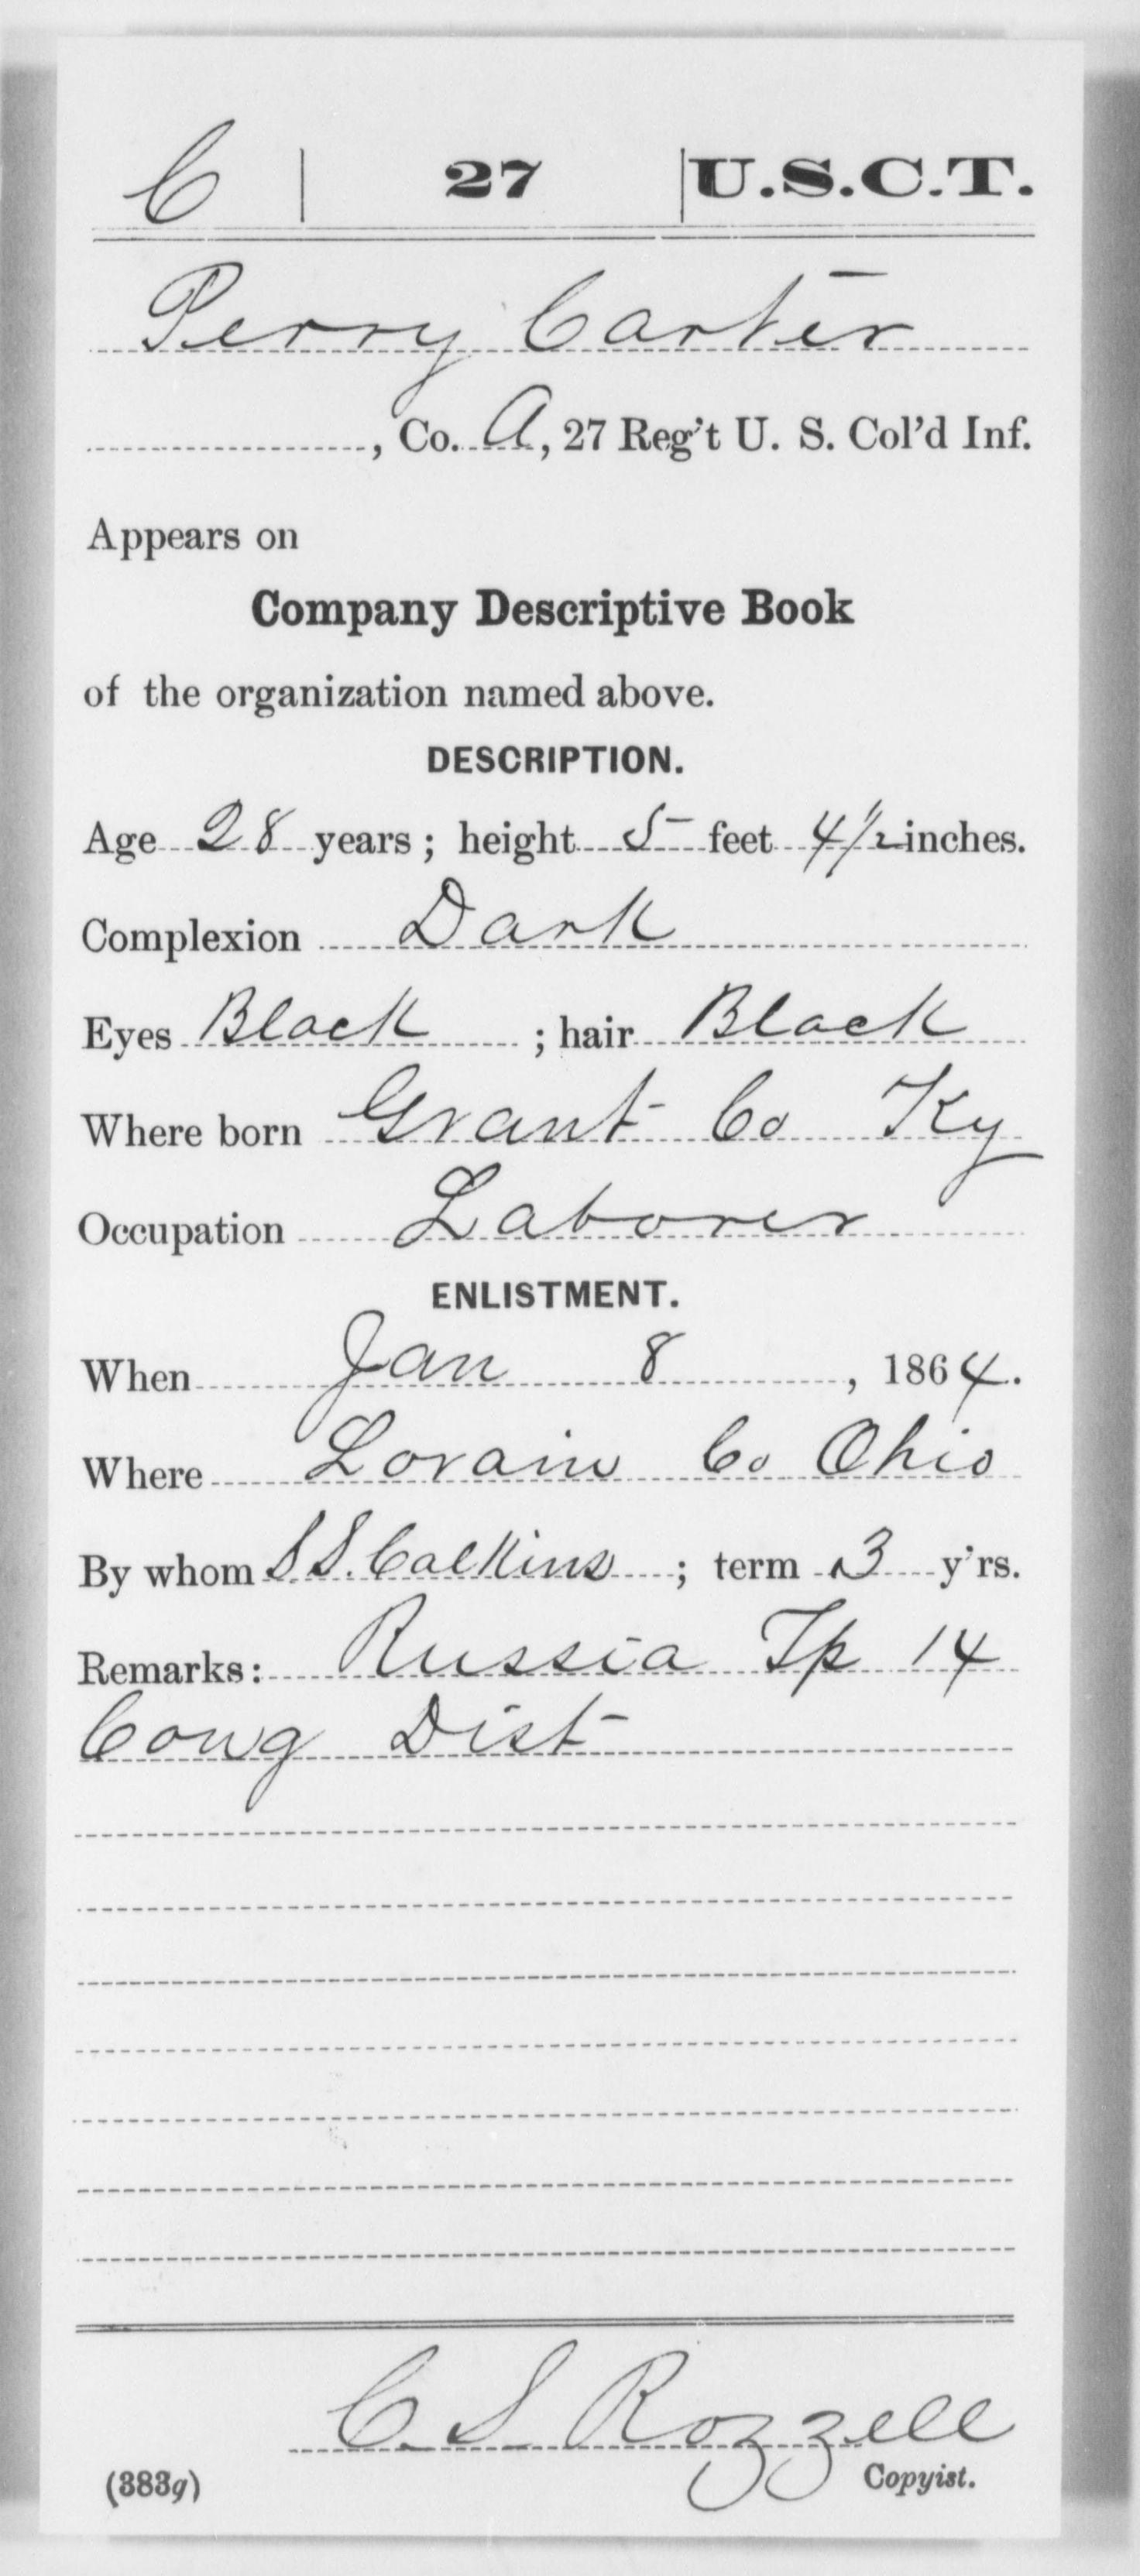 C | 27 | U.S.C.T.
Perry Carter
, Co. A, 27 Reg't U. S. Col'd Inf.
Appears on
Company Descriptive Book
of the organization named above.
DESCRIPTION.
Age 28 years; height 5 feet 4 1/2 inches.
Complexion Dark
Eyes Black ; hair Black
Where born Grant Co Ky
Occupation Laborer
ENLISTMENT.
When Jan 8, 1864.
Where Lorain Co Ohio
By whom S S. Calkins ; term 3 y'rs.
Remarks: Russia Tp 14
Cong Dist
C. S Rozzell
(383g) Copyist.